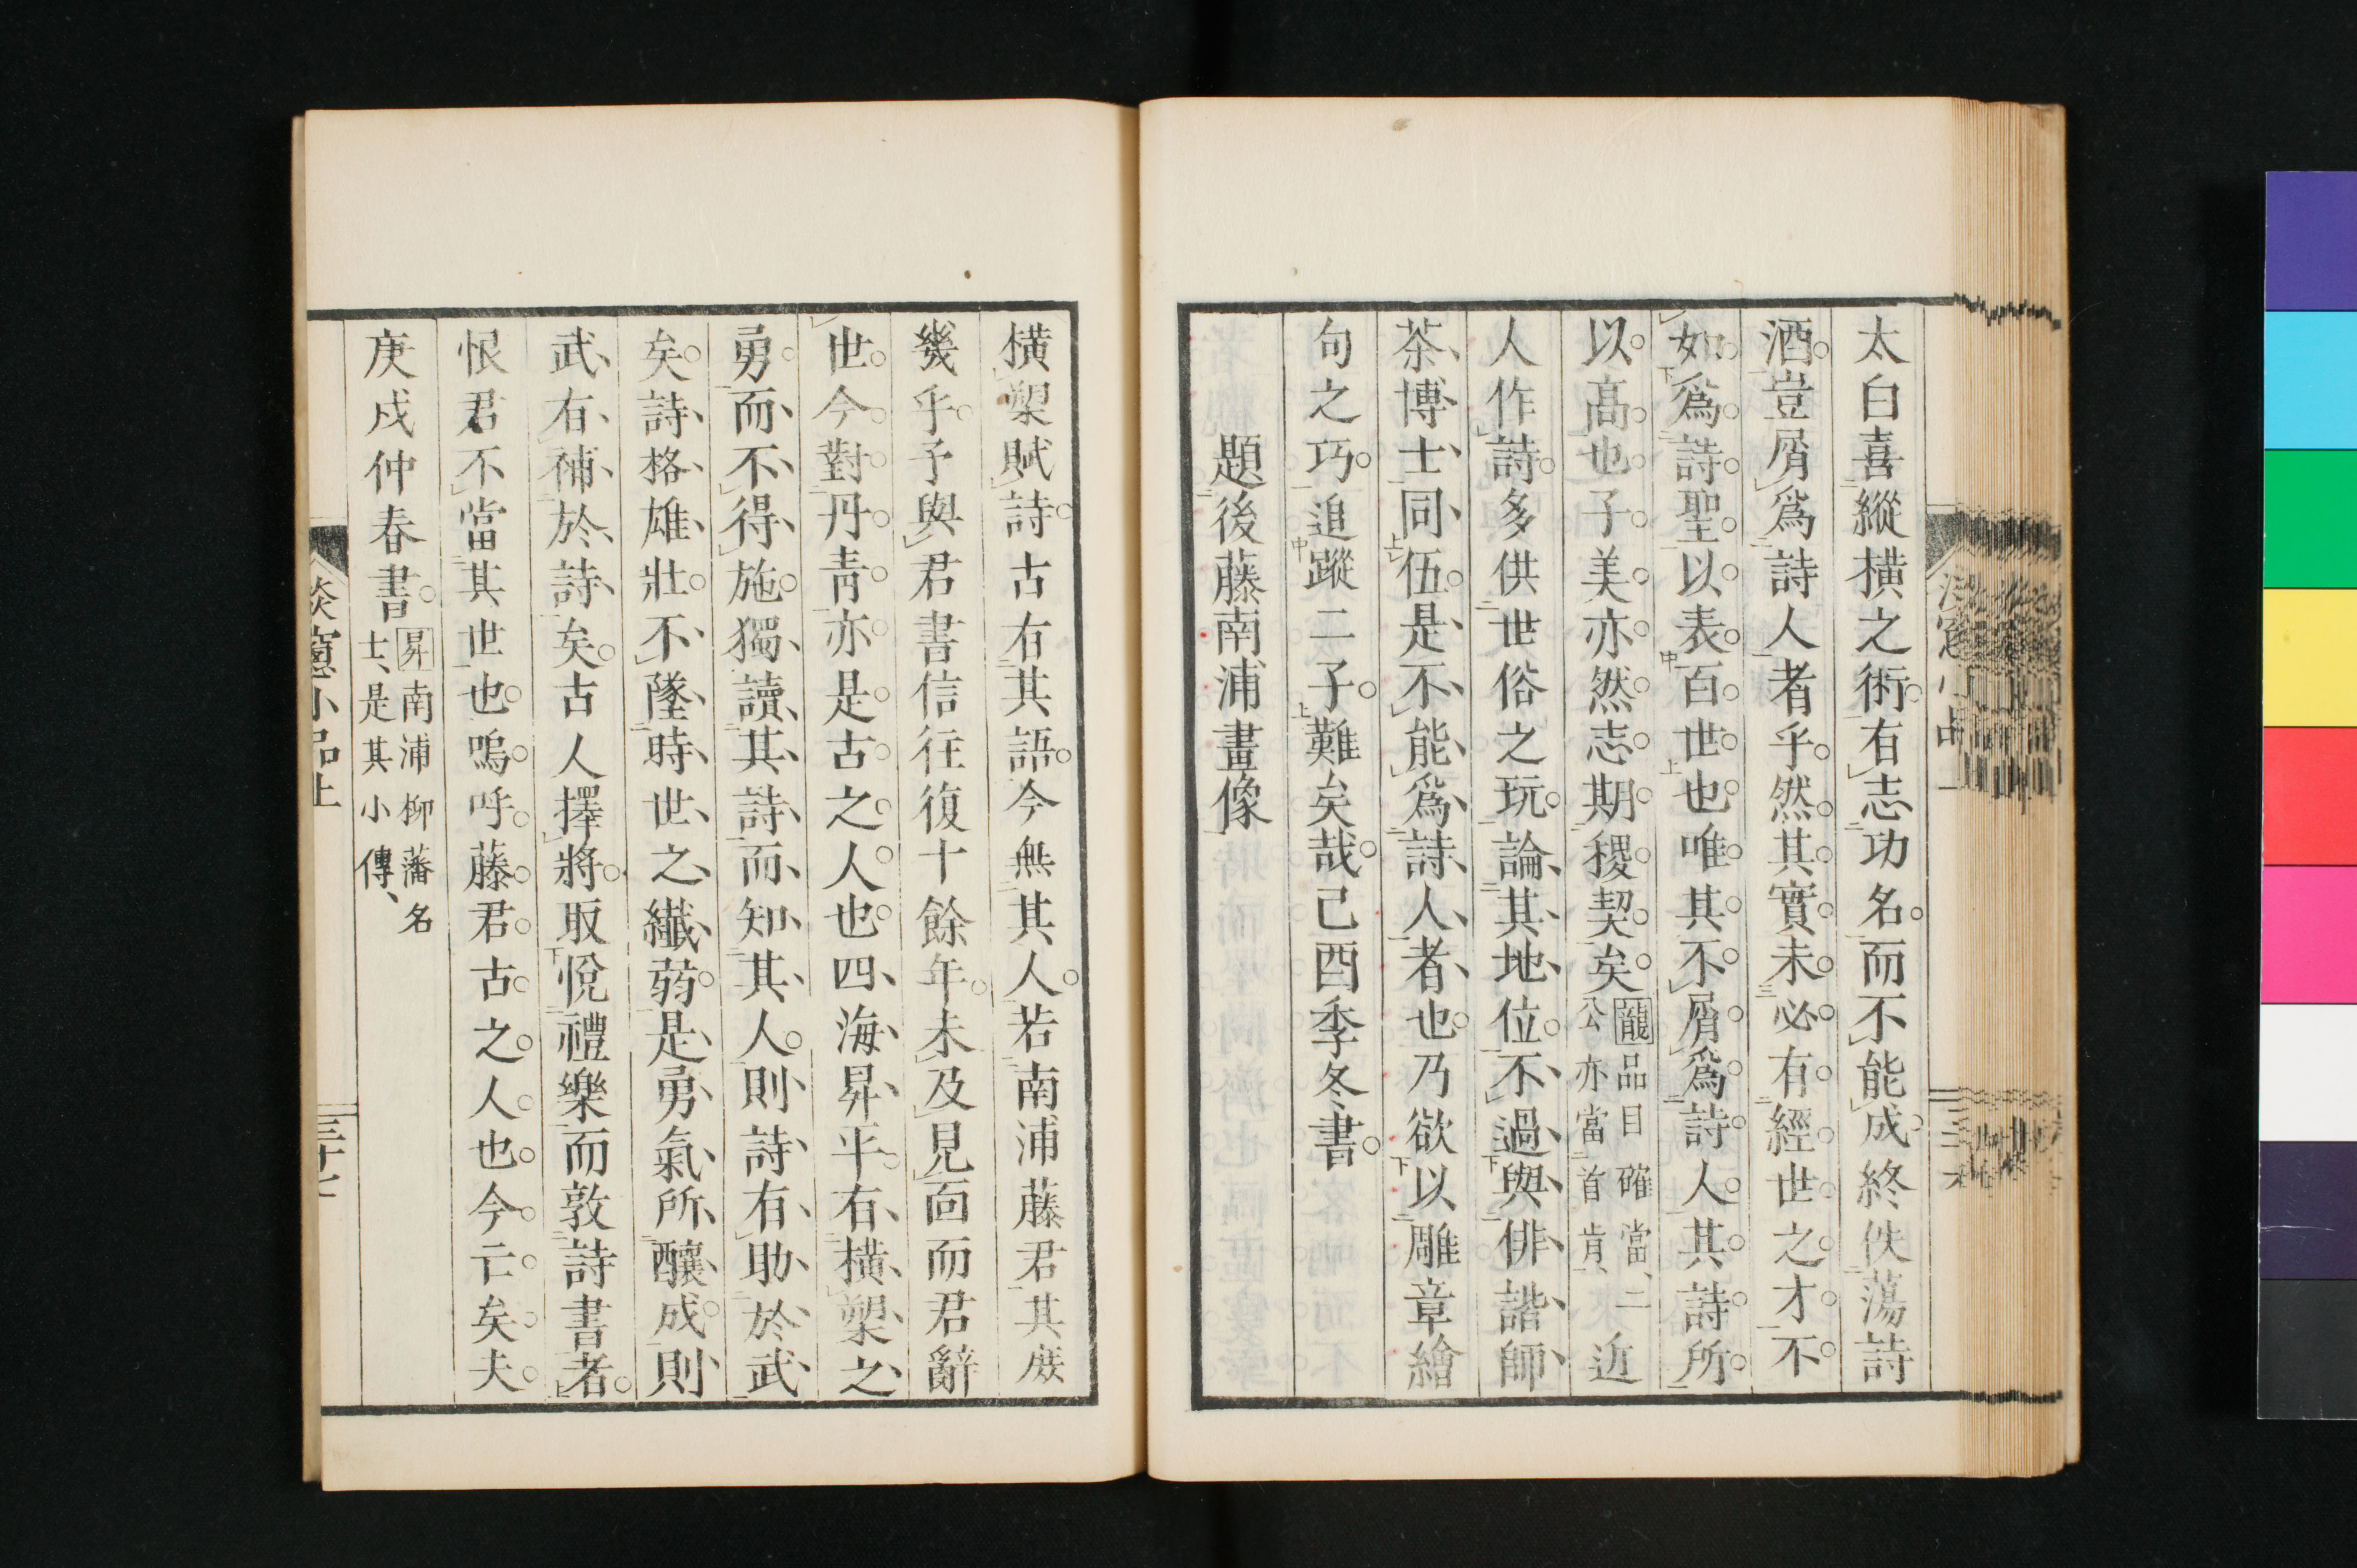 太白喜縱橫之術有志功名而不能成終佚蕩詩
酒豈屑爲詩人者乎然其實未必有經世之才不
如爲詩聖以表百世也唯其不屑爲詩人其詩所
以高也子美亦然志期稷契矣
龍品目確當、二
公亦當首肯、
近
人作詩多供世俗之玩論其地位不過與俳諧師
茶博士同伍是不能爲詩人者也乃欲以雕章繪
句之巧追蹤二子難矣哉己酉季冬書
題後藤南浦畫像
橫槊賦詩古有其語今無其人若南浦藤君其庶
幾乎予與君書信往復十餘年未及見面而君辭
世今對丹青亦是古之人也四海昇平有橫槊之
勇而不得施獨讀其詩而知其人則詩有助於武
矣詩格雄壯不墜時世之纖弱是勇氣所釀成則
武有補於詩矣古人擇將取悅禮樂而敦詩書者
恨君不當其世也嗚呼藤君古之人也今亡矣夫
庚戌仲春書
昇南浦柳藩名
士、是其小傳、
淡窻小品上
三十七